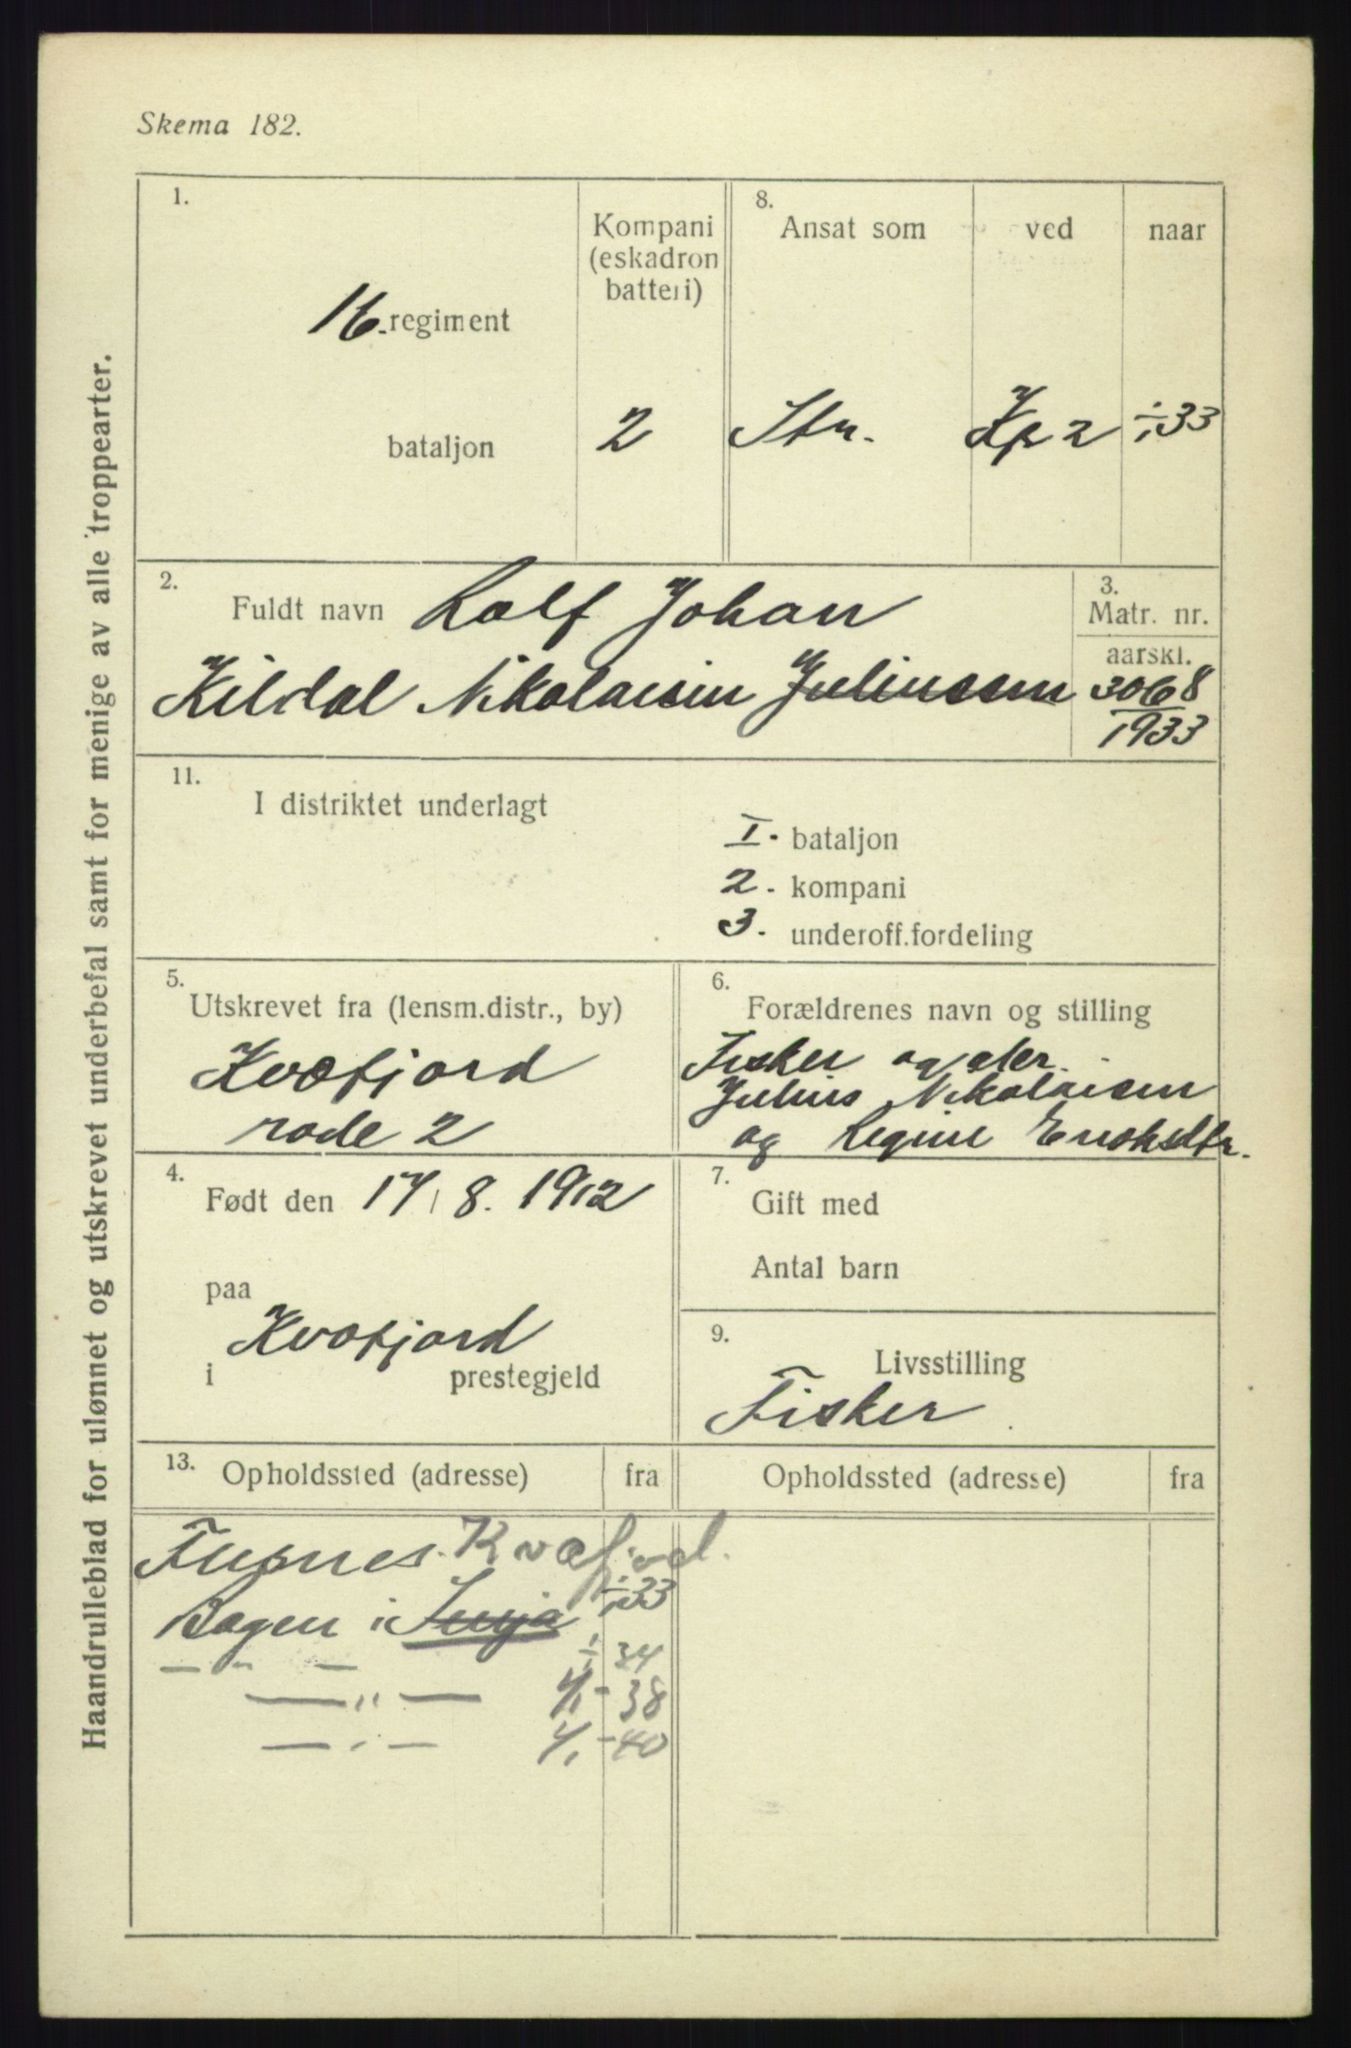 Skema 182.
Haandrulleblad for ulønnet og utskrevet underbefal samt for menige av alle troppearter.
1.
Kompani
(eskadron
batteri)
8.
Ansat som
ved
naar
16. regiment
bataljon
2
Stn.
Kp 2
1/1 33
2.
Fuldt navn Rolf Johan
Kildal Nikolaisen Juliussen
3.
Matr. nr.
aarskl.
3068
1933
11.
I distriktet underlagt
I. bataljon
2. kompani
3. underoff.fordeling
5.
Utskrevet fra (lensm.distr., by)
Kvæfjord
rode 2
6.
Forældrenes navn og stilling
Fisker og
Julius Nikolaisen
og Regine
4.
Født den 17/8. 1912
paa
Kvæfjord
i prestegjeld
7.
Gift med
Antal barn
9.
Livsstilling
Fisker
13.
Opholdssted (adresse)
fra
Opholdssted (adresse)
fra
Kvæfjord.
1/1 33
Bogen i Senja
— - — 1/1 34
— „ — 1/1 - 38
— „ — 1/1 - 40